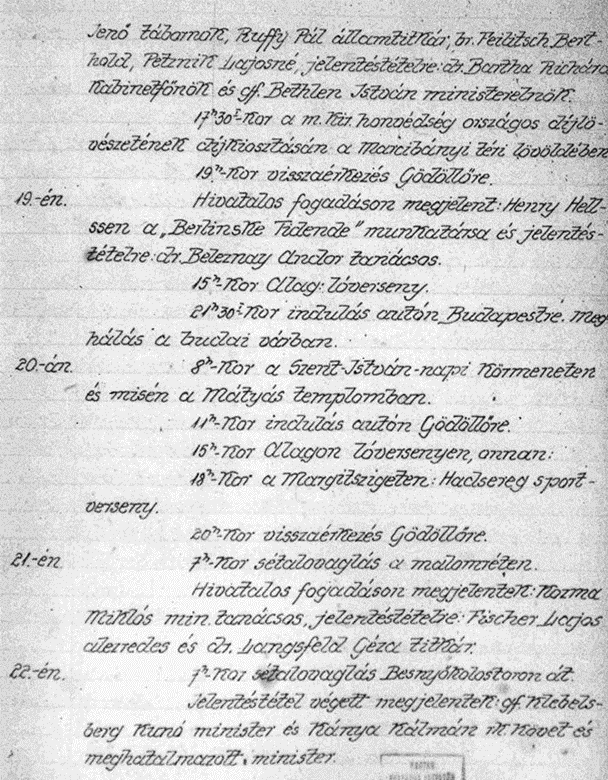 Jenő tábornok, Ruffy Pál államtitkár, br. Peilitsch Bert-
hold, Petznik Lajosné, jelentéstételre: dr. Bartha Richárd
Kabinetfőnök és gf. Bethlen István ministerelnök.
17ʰ30ᴵ-kor a m. kir. honvédség országos díjlö-
vészetének díjkiosztásán a Marcibányi téri lövöldében
19ʰ-kor visszaérkezés Gödöllőre.
19.-én. Hivatalos fogadáson megjelent: Henry Hell-
ssen a „Berlinske Tidende" munkatársa és jelentés-
tételre: dr. Beleznay Andor tanácsos.
15ʰ-kor Alag: lóverseny.
21ʰ30ᴵ-kor indulás autón Budapestre. Meg
hálás a budai várban.
20.-án. 8ʰ-kor a Szent-István-napi körmeneten
és misén a Mátyás templomban.
11ʰ-kor indulás autón Gödöllőre.
15ʰ-kor Alagon lóversenyen, onnan:
18ʰ-kor a Margitszigeten: Hadsereg sport-
verseny.
20ʰ-kor visszaérkezés Gödöllőre.
21.-én. 7ʰ-kor sétalovaglás a malomréten.
Hivatalos fogadáson megjelentek: Kozma
Miklós min. tanácsos, jelentéstételre: Fischer Lajos
alezredes és dr. Langsfeld Géza titkár.
22.-én. 7ʰ-kor sétalovaglás Besnyőkolostoron át.
Jelentéstétel végett megjelentek: gf. Klebels-
berg Kunó minister és Kánya Kálmán rk. követ és
meghatalmazott minister.